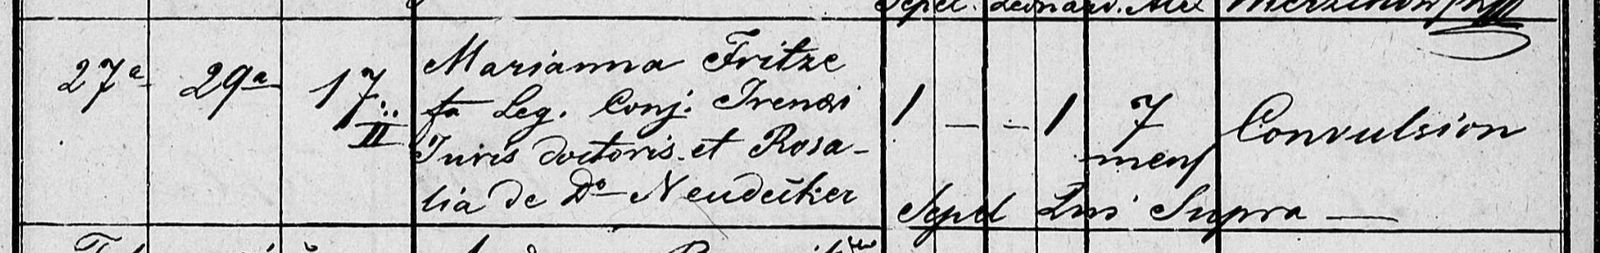 Sepel. Leonard. Alex
27a 29a 17 II
Marianna Fritze
fa Leg. Conj. Irenæi
Juris doctoris et Rosa-
lia de Do Neudeüker
1 — — 1 7 mens Convulsion
Sepel Qui Supra —